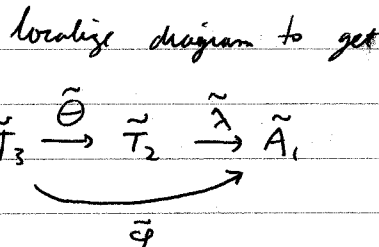 localize diagram to get
T̃₃ —Θ̃→ T̃₂ —λ̃→ Ã₁
φ̃